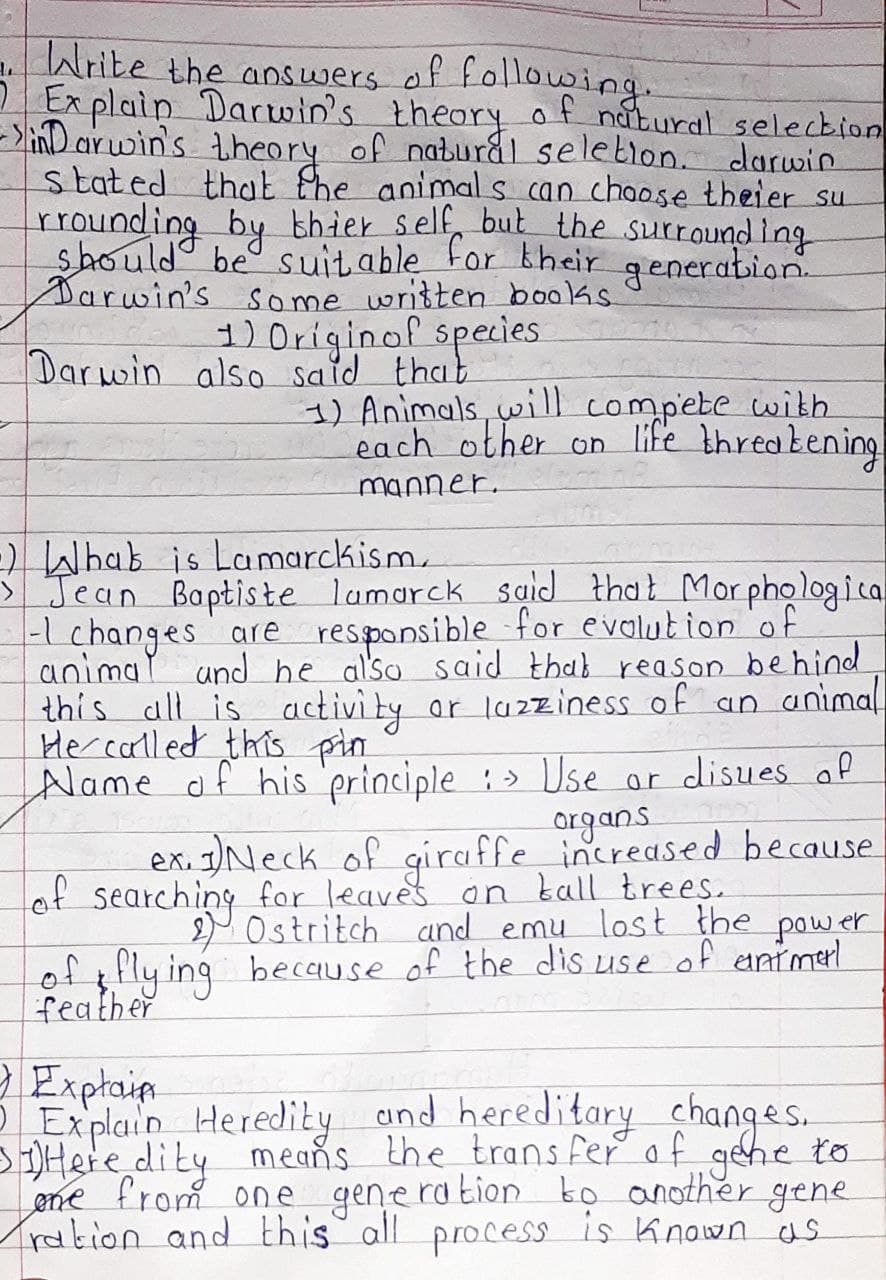 1. Write the answers of following.
) Explain Darwin's theory of natural selection
-> in Darwin's theory of natural seletion. darwin
stated that the animals can choose theier su
rrounding by thier self but the surrounding
should be suitable for their generation.
Darwin's some written books
1) Origin of species
Darwin also said that
1) Animals will compete with
each other on life threatening
manner.
) What is Lamarckism.
> Jean Baptiste lamarck said that Morphologica
-l changes are responsible for evolution of
animal and he also said that reason behind
this all is activity or lazziness of an animal
He called this
Name of his principle :-> Use or disues of
organs
ex. 1) Neck of giraffe increased because
of searching for leaves on tall trees.
2) Ostritch and emu lost the power
of flying because of the disuse of
feather
) Explain
) Explain Heredity and hereditary changes.
> 1) Heredity means the transfer of gene to
one from one generation to another gene
ration and this all process is known as